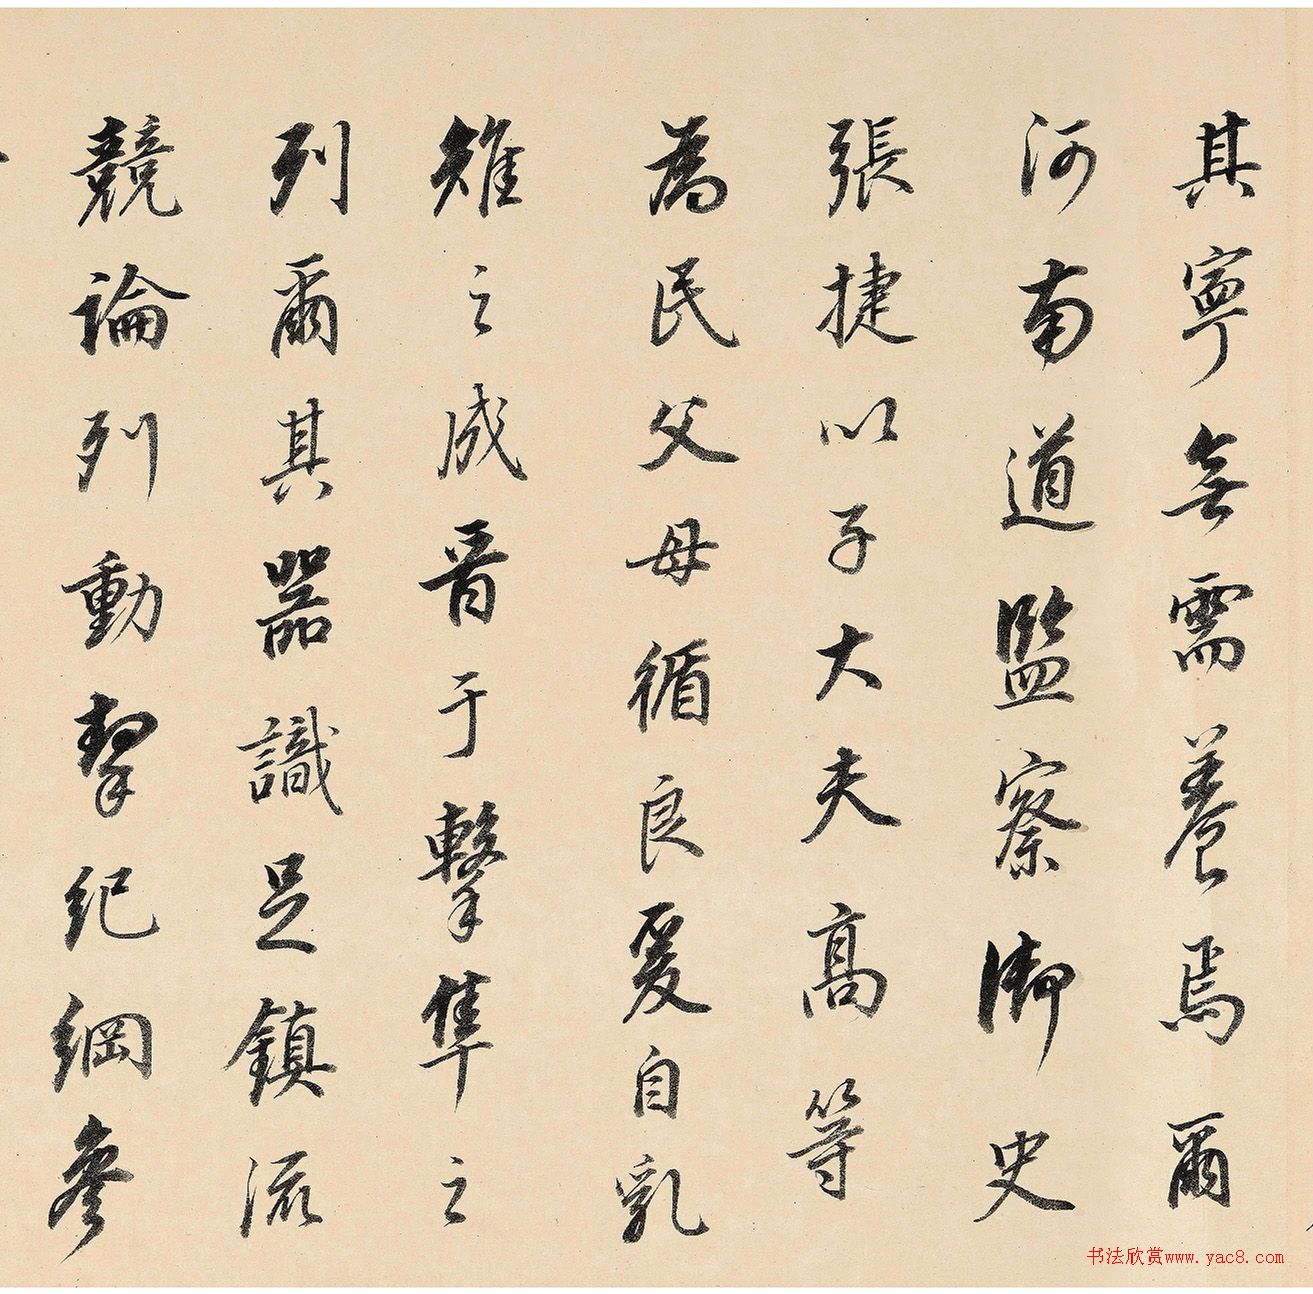 其寧無需養焉爾
河南道監察御史
張捷以子大夫高等
為民父母循良爰自乳
雉之成晉于擊隼之
列爾其器識足鎮流
競論列動挈紀綱參
书法欣赏www.yac8.com